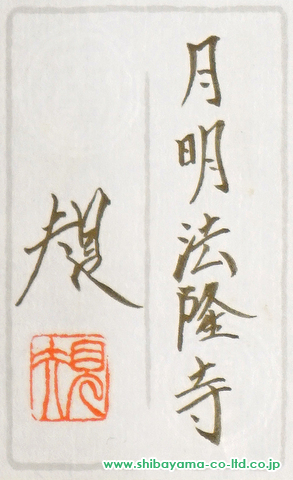 月明法隆寺
規
規
www.shibayama-co-ltd.co.jp